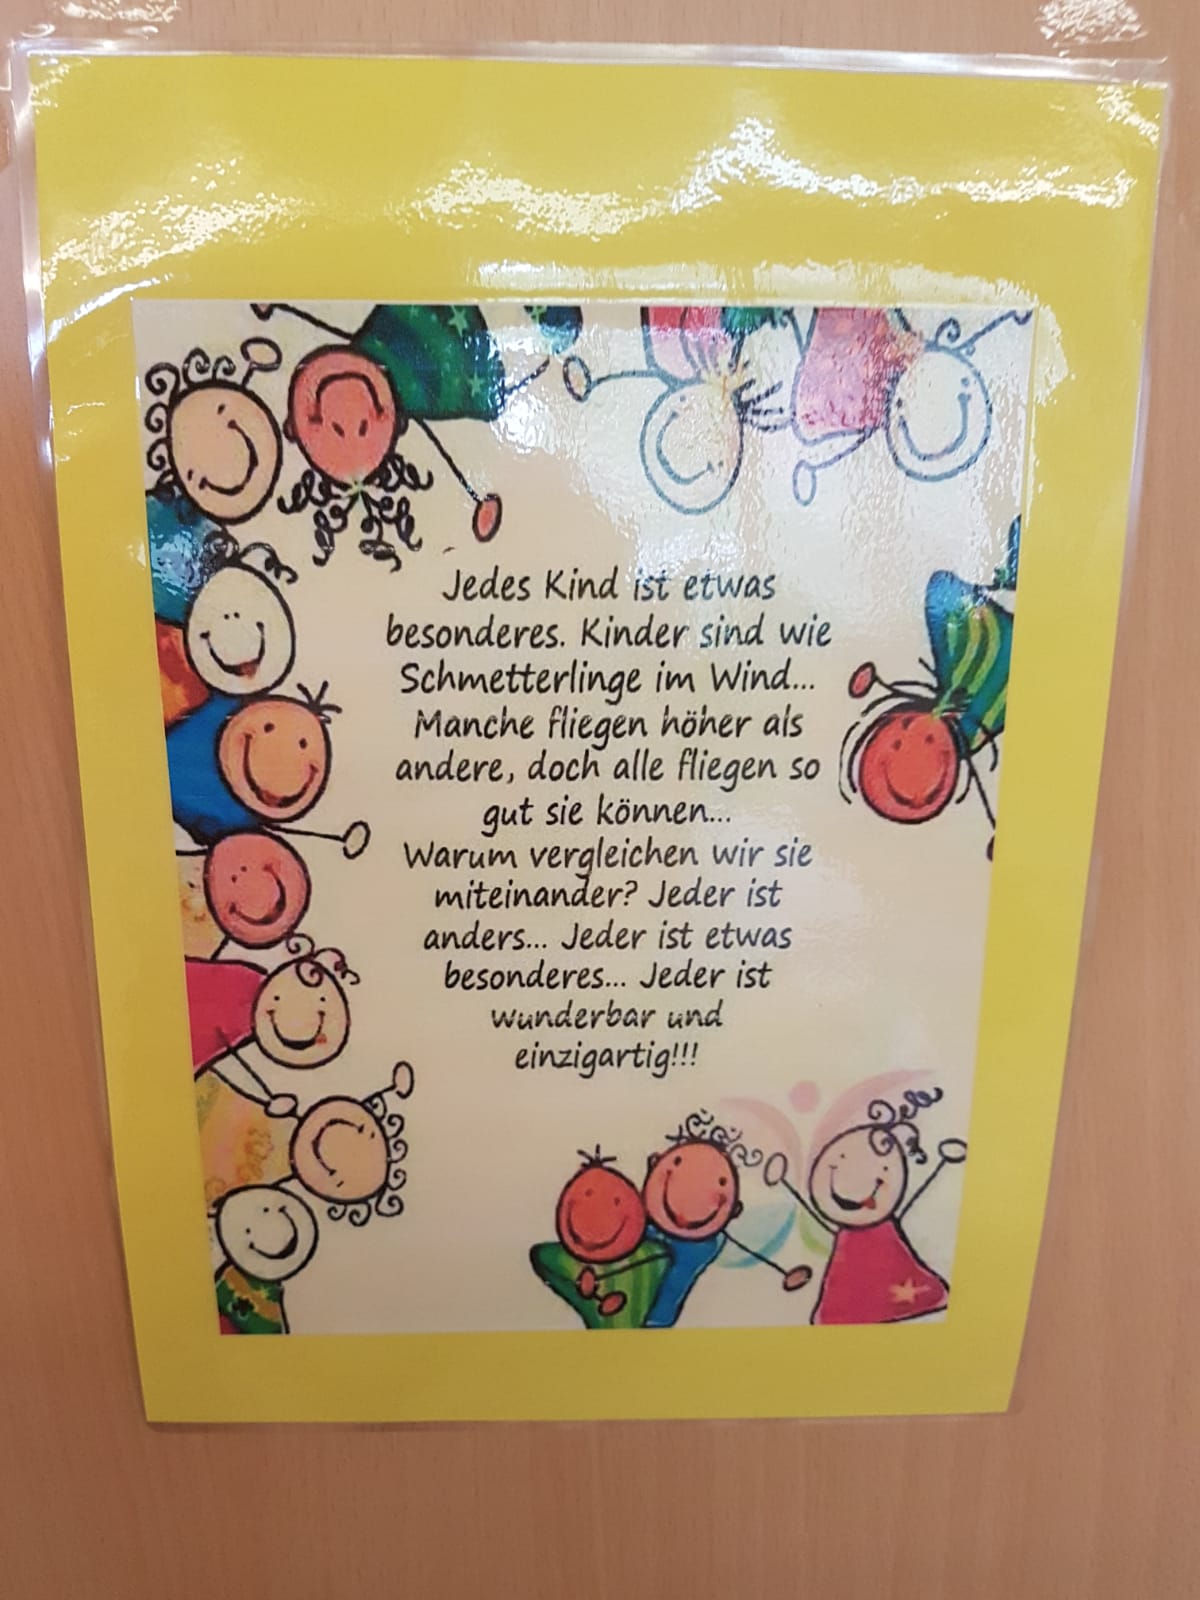 Jedes Kind ist etwas
besonderes. Kinder sind wie
Schmetterlinge im Wind...
Manche fliegen höher als
andere, doch alle fliegen so
gut sie können...
Warum vergleichen wir sie
miteinander? Jeder ist
anders... Jeder ist etwas
besonderes... Jeder ist
wunderbar und
einzigartig!!!